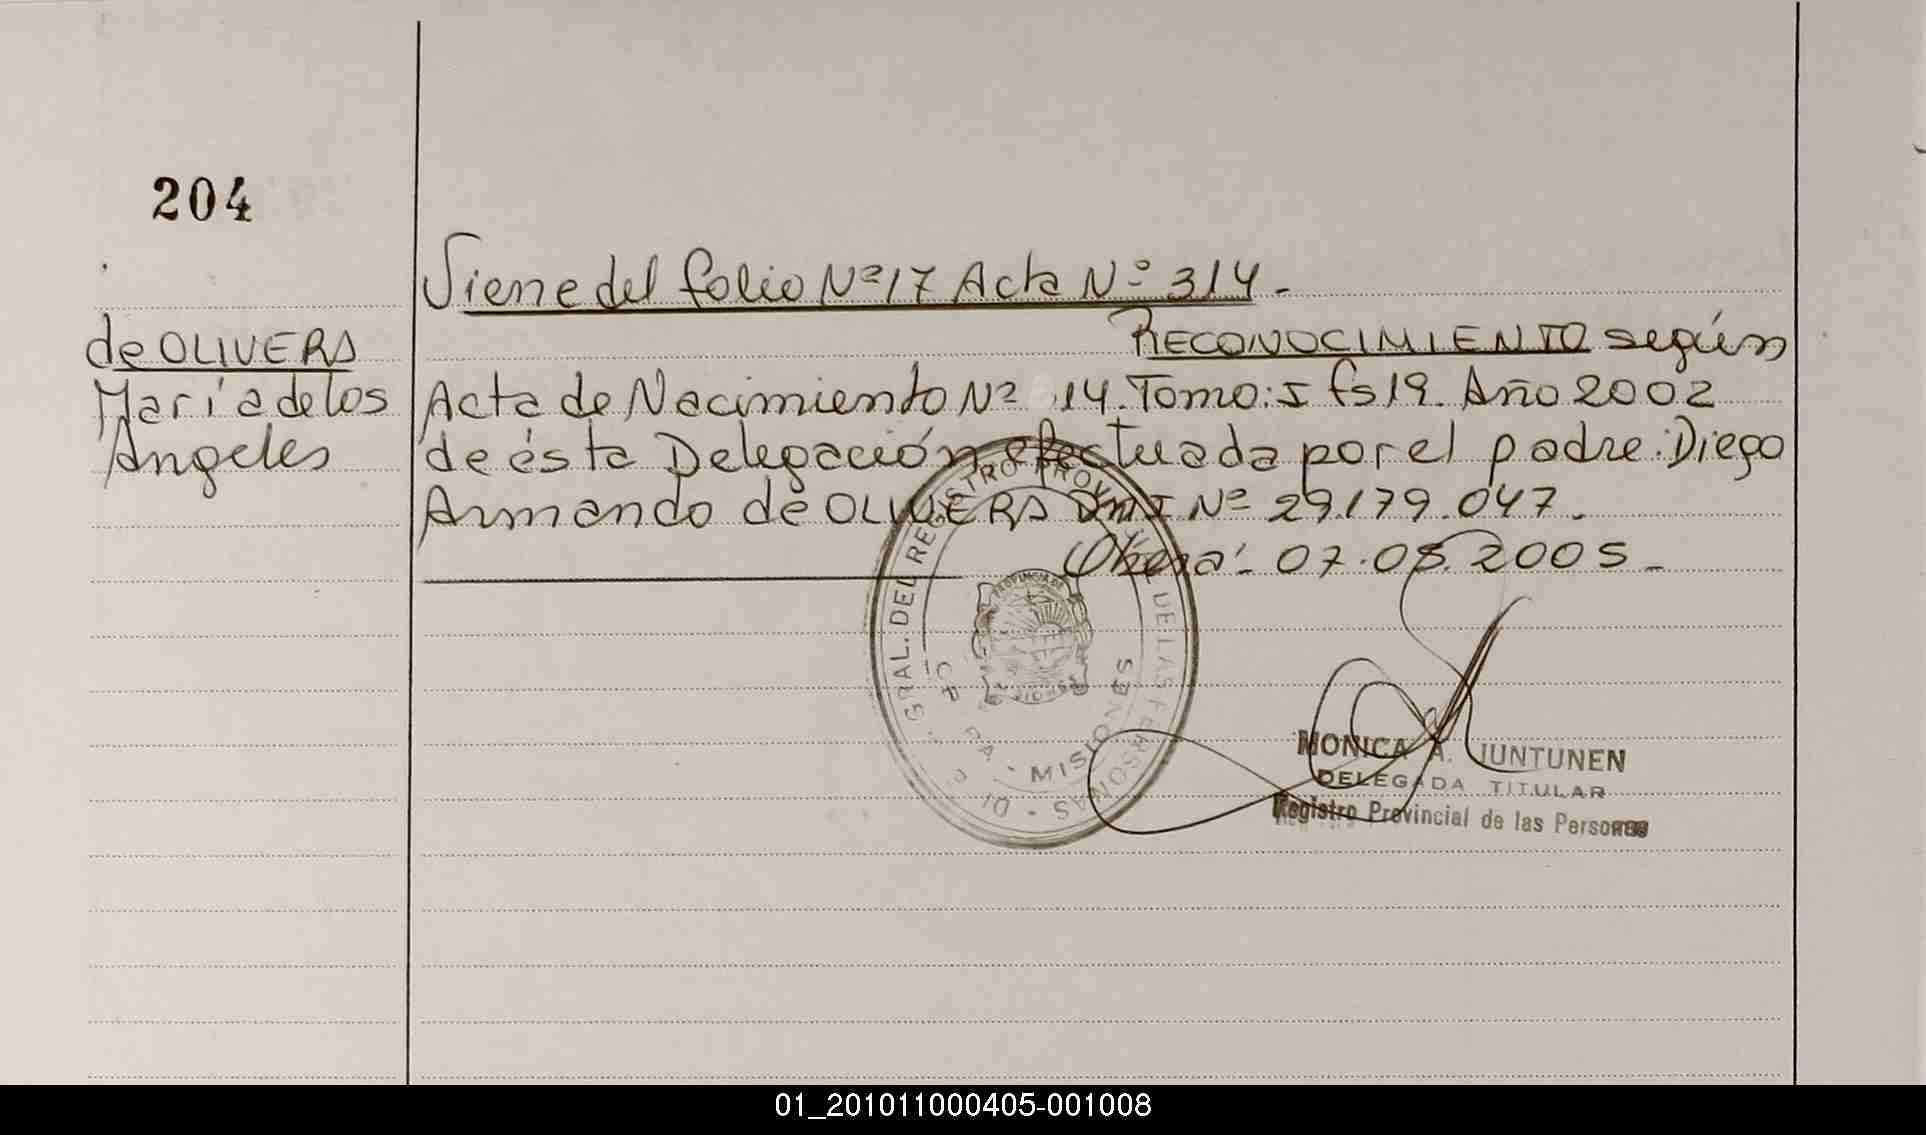 204
Viene del folio Nº 17 Acta Nº 314.-
de OLIVERA
María de los
Angeles
RECONOCIMIENTO según
Acta de Nacimiento Nº 14. Tomo: I fs 19. Año 2002
de ésta Delegación efectuada por el padre: Diego
Armando de OLIVERA DNI Nº 29.179.047.
Oberá: 07.05.2005.-
GRAL. DEL REGISTRO PROV. DE LAS PERSONAS - DI
PROVINCIA DE
MISIONES
MISIONES
MONICA A. JUNTUNEN
DELEGADA TITULAR
Registro Provincial de las Personas
01_201011000405-001008